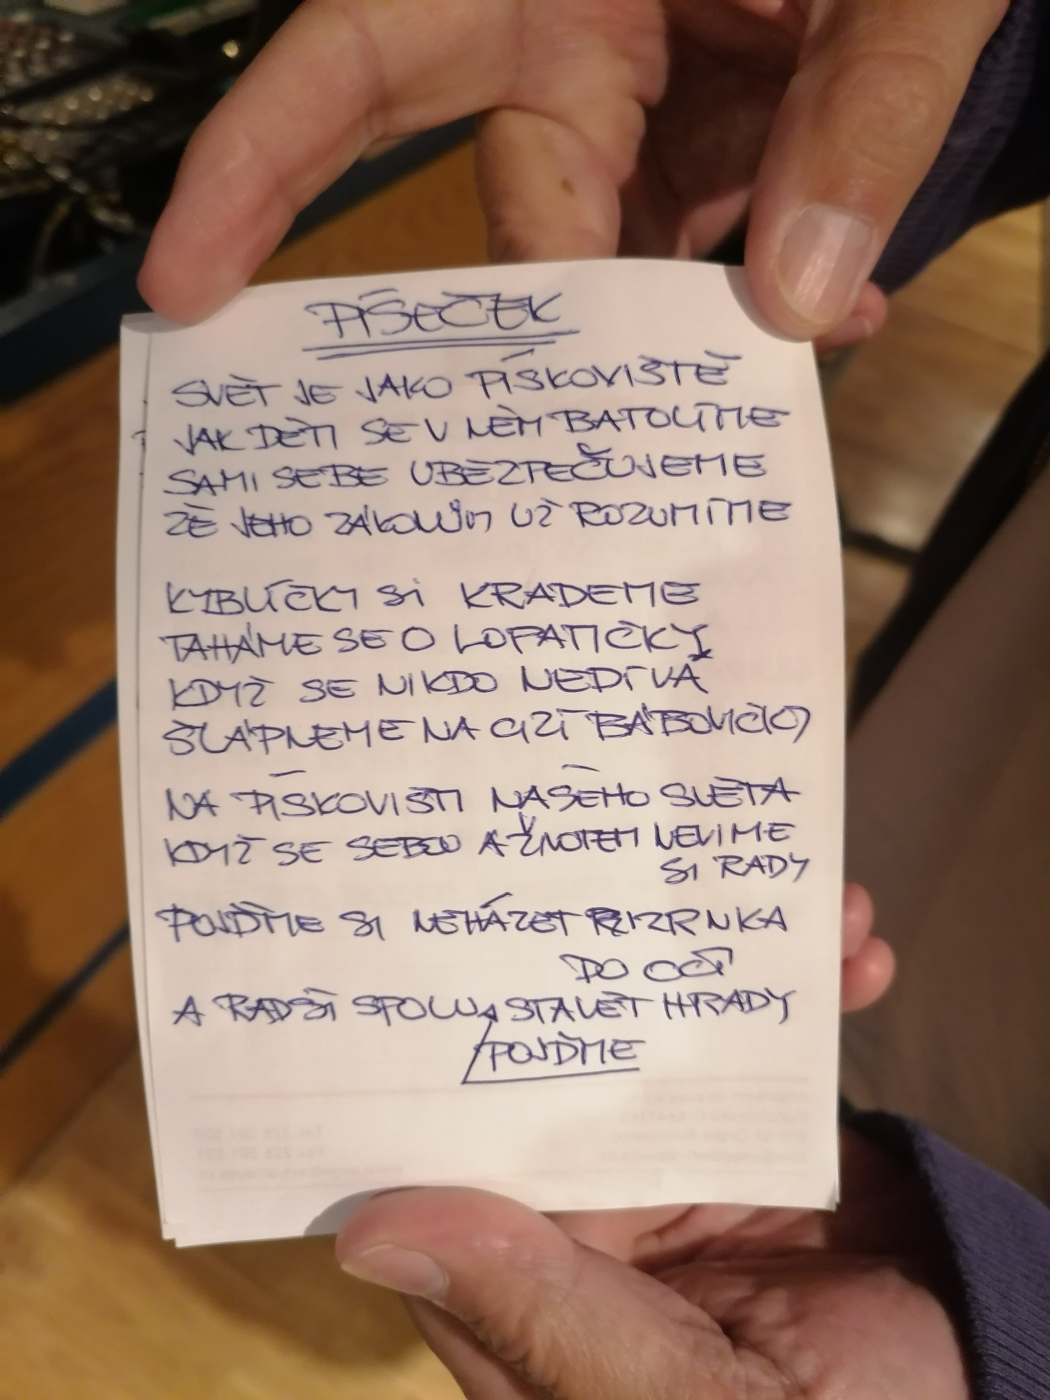 PÍSEČEK
SVĚT JE JAKO PÍSKOVIŠTĚ
JAK DĚTI SE V NĚM BATOLÍME
SAMI SEBE UBEZPEČUJEME
ŽE JEHO ZÁKONŮM UŽ ROZUMÍME
KYBLÍČKY SI KRADEME
TAHÁME SE O LOPATIČKY
KDYŽ SE NIKDO NEDÍVÁ
ŠLÁPNEME NA CIZÍ BÁBOVIČKY
NA PÍSKOVIŠTI NAŠEHO SVĚTA
KDYŽ SE SEBOU A ŽIVOTEM NEVÍME
SI RADY
POJĎME SI NEHÁZET ZRNKA
DO OČÍ
A RADŠI SPOLU STAVĚT HRADY
POJĎME